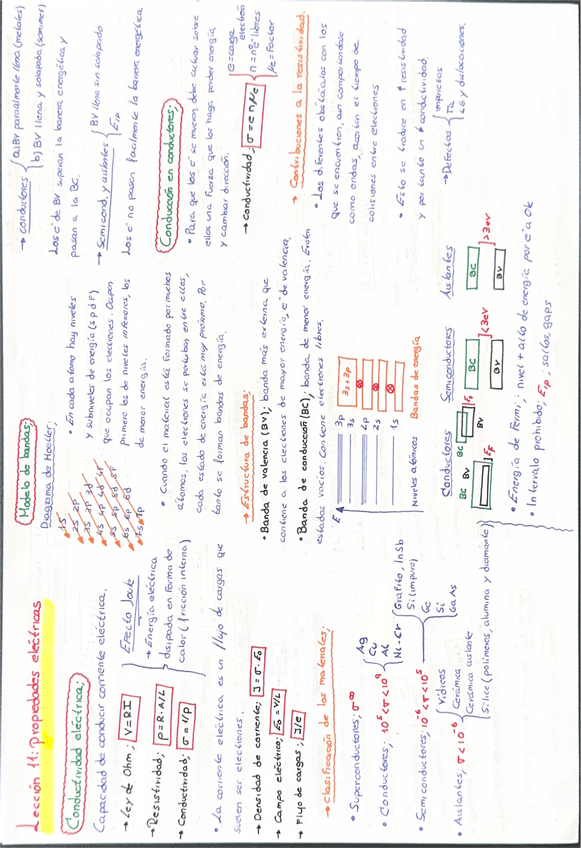 Lección 11: Propiedades eléctricas
Conductividad eléctrica;
Capacidad de conducir corriente eléctrica.
→ Ley de Ohm; V=R·I
→ Resistividad; ρ=R·A/L
→ Conductividad; σ=1/ρ
Efecto Joule
→ Energía eléctrica
disipada en forma de
calor (fricción interna)
• La corriente eléctrica es un flujo de cargas que
suelen ser electrones.
→ Densidad de corriente; J=σ·E₀
→ Campo eléctrico; E₀=V/L
→ Flujo de cargas; J/e
→ Clasificación de los materiales;
• Superconductores; σ∞
• Conductores; 10⁵<σ<10⁹ { Ag
Cu
Al
Ni-Cr
• Semiconductores; 10⁻⁶<σ<10⁵ { Grafito, InSb
Si (impuro)
Ge
Si
GaAs
• Aislantes; σ<10⁻⁶ { Vidrios
Cerámica
Cerámica aislante
Sílice (polímeros, alumina y diamante)
Modelo de bandas;
Diagrama de Moeller;
1s
2s 2p
3s 3p 3d
4s 4p 4d 4f
5s 5p 5d 5f
6s 6p 6d
7s 7p
• En cada átomo hay niveles
y subniveles de energía (s p d f)
que ocupan los electrones. Ocupan
primero los de niveles inferiores, los
de menor energía.
• Cuando el material está formado por muchos
átomos, los electrones se reparten entre ellos,
cada estado de energía está muy próximo. Por
tanto se forman bandas de energía.
→ Estructura de bandas;
• Banda de valencia (BV); banda más externa que
contiene a los electrones de mayor energía, e⁻ de valencia.
• Banda de conducción (BC); banda de menor energía. Existen
estados vacíos. Contiene electrones libres.
E
3p
3s
2p
2s
1s
3s+3p
Niveles atómicos
Bandas de energía
Conductores
Semiconductores
Aislantes
BC
BV
E_F
BC
BV
E_F
BC
BV
<3eV
BC
BV
>3eV
• Energía de Fermi; nivel + alto de energía por e⁻ a 0k
• Intervalo prohibido; E_IP; saltos, gaps
→ Conductores { a) BV parcialmente llena (metales)
b) BV llena y solapada
Los e⁻ de BV superan la barrera energética y
pasan a la BC.
→ Semicond. y aislantes { BV llena sin solapado
E_IP
Los e⁻ no pasan facilmente la barrera energética
Conducción en conductores;
• Para que los e⁻ se muevan, debe actuar sobre
ellos una fuerza que los haga perder energía
y cambiar dirección.
→ Conductividad; σ=e n μe { e=carga electrón
n=nº e⁻ libres
μe=Factor
→ Contribuciones a la resistividad.
• Los diferentes obstáculos con los
que se encuentren, aun comportandose
como ondas, acortan el tiempo de
colisiones entre electrones
• Esto se traduce en ↑ resistividad
y por tanto en ↓ conductividad.
→ Defectos { impurezas
Tª
LG y dislocaciones.